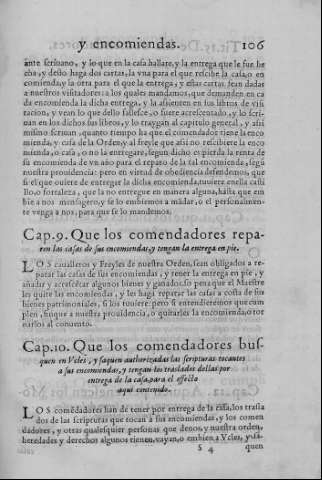 y encomiendas. 106
ante scriuano, y lo que en la casa hallare, y la entrega que le fue he
cha, y dello haga dos cartas, la vna para el que rescibe la casa, o en
comienda, y la otra para el que la entrega, y estas cartas sean dadas
a nuestros visitadores: a los quales mandamos, que demanden en ca
da encomienda la dicha entrega, y la assienten en sus libros de visi
tacion, y vean lo que dello fallesce, o fuere acrescentado, y lo scri-
uan en los dichos sus libros, y lo traygan al capitulo general, y assi
mismo scriuan, quanto tiempo ha que el comendador tiene la enco
mienda, y casa de la Orden, y al freyle que assi no rescibiere la enco
mienda, o casa, o no la entregare, segun dicho es pierda la renta de
su encomienda de vn año para el reparo de la tal encomienda, segũ
nuestra prouidencia: pero en virtud de obediencia defendemos, que
si el que ouiere de entregar la dicha encomienda, tuuiere en ella casti
llo, o fortaleza, que la no entregue en manera alguna, hasta que em
bie a nos mensagero, y se lo embiemos a mãdar, o el personalmen-
te venga a nos, para que se lo mandemos.
Cap.9. Que los comendadores repa-
ren las casas de sus encomiendas, y tengan la entrega en pie.
LOS caualleros y Freyles de nuestra Orden, sean obligados a re-
patar las casas de sus encomiendas, y tener la entrega en pie, y
añadir y acrescentar algunos bienes y ganados, so pena que el Maestre
les quite las encomiendas, y les haga reparar las casas a costa de sus
bienes patrimoniales, si los tuuiere: pero si entendieremos que cum
plen, finque a nuestra prouidencia, o quitarles las encomiendas, o tor
narlos al conuento.
Cap.10. Que los comendadores bus-
quen en Vcles, y saquen authorizadas las scripturas tocantes
a sus encomiendas, y tengan los traslados dellas por
entrega de la casa, para el effecto
aqui contenido.
LOS comẽdadores han de tener por entrega de la casa, los trasla
dos de las scripturas que tocan à sus encomiendas, y los comen
dadores, y otras qualesquier personas que denos, y nuestra orden,
heredades y derechos algunos tienen, vayan, o embien a Vcles, y sa-
S 4 quen